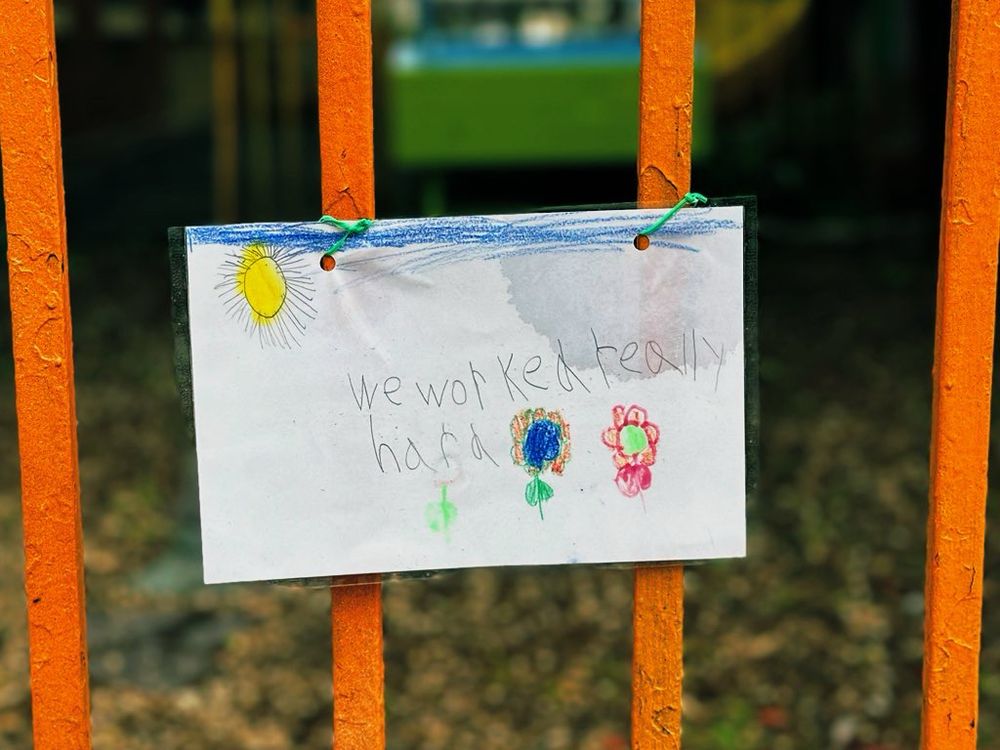 we worked really
hard